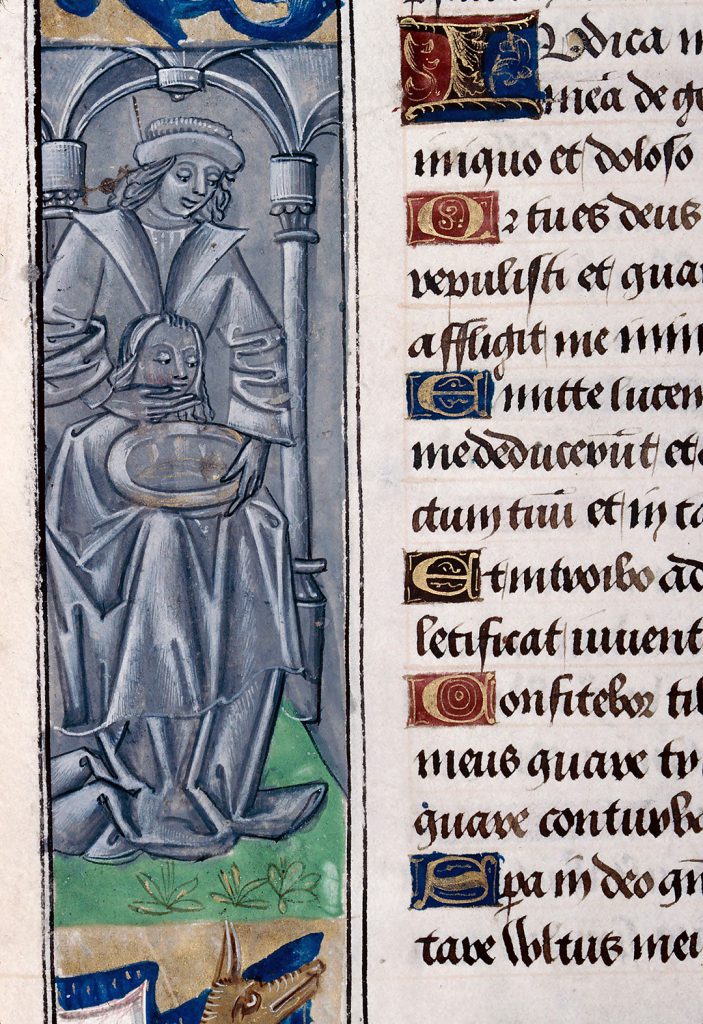 Iudica m
meā de ge
iniquo et doloso
Or tu es deus
repulisti et quar
affligit me inim
Emitte lucem
me deduxerūt et
ctum tuū et in ta
Et introibo ad
letificat iuvent
Confitebor tib
meus quare tr
quare conturba
Spera in deo qm̄
tare vultus mei